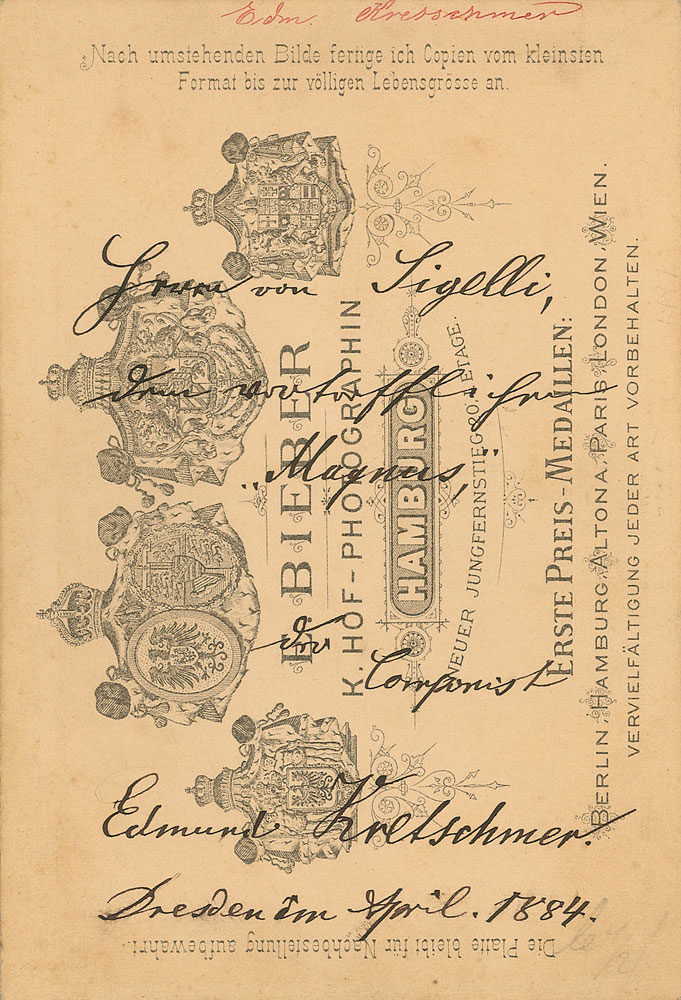 Edm. Kretschmer
Nach umstehenden Bilde fertige ich Copien vom kleinsten
Format bis zur völligen Lebensgrösse an.
Herrn von Sigelli,
dem vortrefflichen
"Magnus,"
der
Componist
Edmund Kretschmer.
Dresden im April. 1884.
E. BIEBER
K. HOF-PHOTOGRAPHIN
HAMBURG
NEUER JUNGFERNSTIEG 20. ETAGE.
ERSTE PREIS-MEDAILLEN:
BERLIN, HAMBURG, ALTONA, PARIS, LONDON, WIEN.
VERVIELFÄLTIGUNG JEDER ART VORBEHALTEN.
Die Platte bleibt für Nachbestellung aufbewahrt.